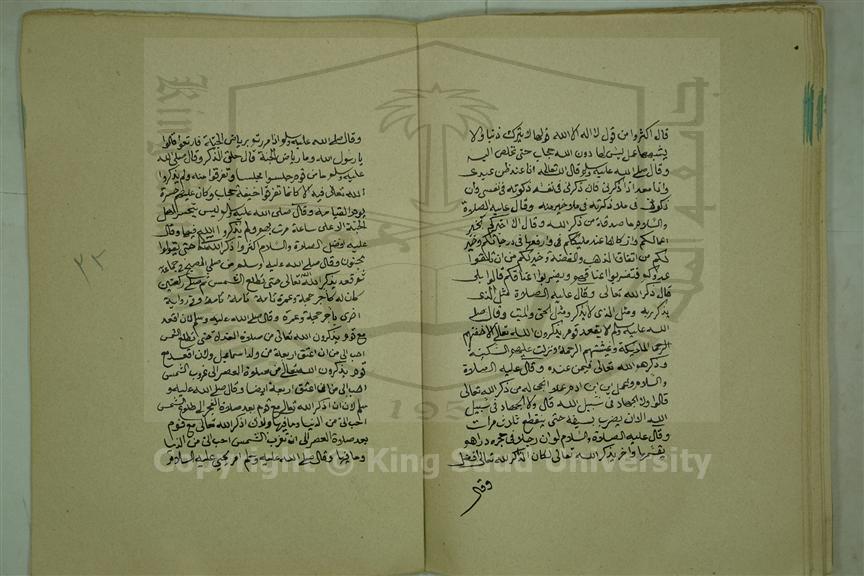 قال اكثروا من قول لا اله الا الله فانها لا تترك ذنبا ولا
يشبهها عمل ليس لها دون الله حجاب حتى تخلص اليه
وقال صلى الله عليه وسلم قال الله تعالى انا عند ظن عبدى
وانا معه اذا ذكرنى فان ذكرنى فى نفسه ذكرته فى نفسى وان
ذكرنى فى ملأ ذكرته فى ملا خير منه وقال عليه الصلاة
والسلام ما صدقة من ذكر الله وقال الا اخبركم بخير
اعمالكم وازكاها عند مليككم وارفعها فى درجاتكم وخير
لكم من انفاق الذهب والفضة وخير لكم من ان تلقوا
عدوكم فتضربوا اعناقهم ويضربوا اعناقكم قالوا بلى
قال ذكر الله تعالى وقال عليه الصلاة مثل الذى
يذكر ربه ومثل الذى لا يذكر ومثل الحى والميت وقال صلى
الله عليه وسلم لا يقعد قوم يذكرون الله تعالى الا حفتهم
الملائكة وغشيتهم الرحمة ونزلت عليهم السكينة
وذكرهم الله تعالى فيمن عنده وقال عليه الصلاة
والسلام وعمل بن ادم عملا انجى له من ذكر الله تعالى
قالوا ولا الجهاد فى سبيل الله قال ولا الجهاد فى سبيل
الله الا ان يضرب بسيفه حتى ينقطع ثلاث مرات
وقال عليه الصلاة والسلام لو ان رجلا فى حجره دراهم
يقسمها واخر يذكر الله تعالى لكان الذاكر لله تعالى افضل
وقال
وقال صلى الله عليه وسلم اذا مررتم برياض الجنة فارتعوا قالوا
يا رسول الله وما رياض الجنة قال حلق الذكر وقال صلى الله
عليه وسلم ما من قوم جلسوا مجلسا وتفرقوا منه ولم يذكروا
الله تعالى فيه الا كانما تفرقوا عن جيفة حمار وكان عليهم حسرة
يوم القيامة وقال صلى الله عليه وسلم ليس يتحسر اهل
الجنة الا على ساعة مرت بهم ولم يذكروا الله فيها وقال
عليه افضل الصلاة والسلام اكثروا ذكر الله تعالى حتى يقولوا
مجنون وقال صلى الله عليه وسلم من صلى الصبح فى جماعة
ثم قعد يذكر الله تعالى حتى تطلع الشمس ثم صلى ركعتين
كان له كاجر حجة وعمرة تامة تامة تامة وفى رواية
اخرى باجر حجة وعمرة وقال صلى الله عليه وسلم لان اقعد
مع قوم يذكرون الله تعالى من صلاة الغداة حتى تطلع الشمس
احب الى من ان اعتق اربعة من ولد اسماعيل ولان اقعد مع
قوم يذكرون الله تعالى من صلاة العصر الى غروب الشمس
احب الى من ان اعتق اربعة ايضا وقال صلى الله عليه و
سلم لان اذكر الله تعالى مع قوم بعد صلاة الفجر الى طلوع الشمس
احب الى من الدنيا وما فيها ولان اذكر الله تعالى مع قوم
بعد صلاة العصر الى ان تغرب الشمس احب الى من الدنيا
وما فيها وقال صلى الله عليه وسلم امر يحيى عليه السلام
٢٢
Copyright © King Saud University
1957